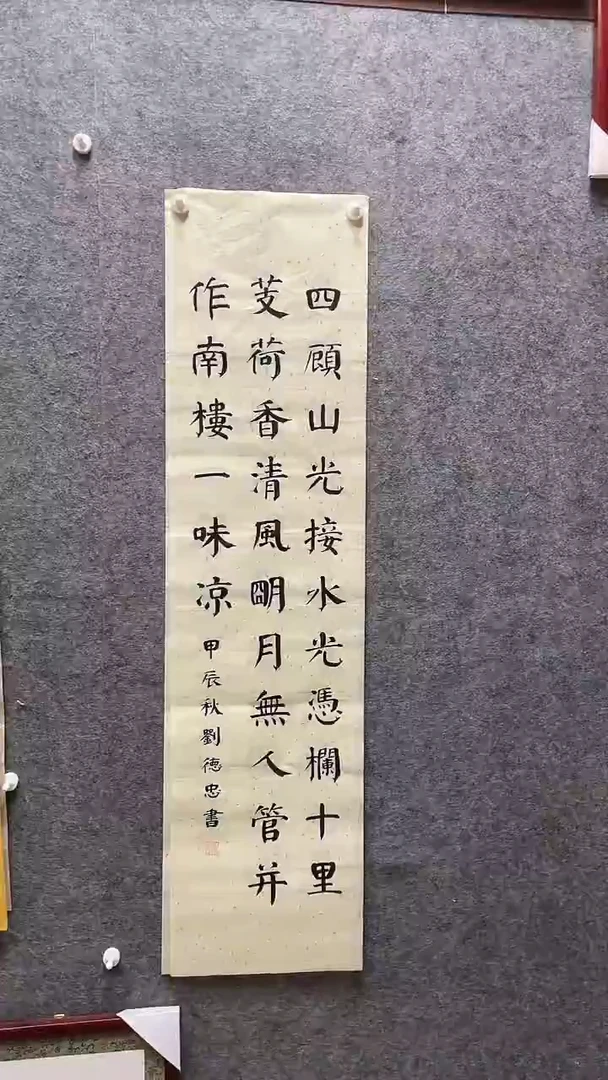 四顧山光接水光憑欄十里
芰荷香清風明月無人管并
作南樓一味凉
甲辰秋劉德忠書